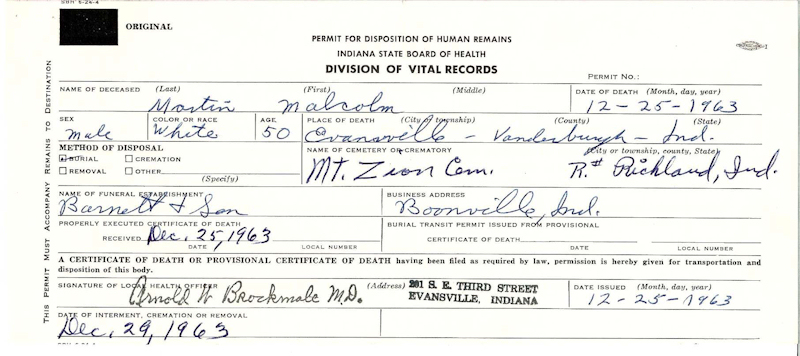 SBH 6-24-4
ORIGINAL
PERMIT FOR DISPOSITION OF HUMAN REMAINS
INDIANA STATE BOARD OF HEALTH
DIVISION OF VITAL RECORDS
PERMIT NO.:
THIS PERMIT MUST ACCOMPANY REMAINS TO DESTINATION
NAME OF DECEASED (Last) (First) (Middle) DATE OF DEATH (Month, day, year)
Martin Malcolm 12-25-1963
SEX COLOR OR RACE AGE PLACE OF DEATH (City or township) (County) (State)
Male White 50 Evansville - Vanderburgh - Ind.
METHOD OF DISPOSAL NAME OF CEMETERY OR CREMATORY (City or township, county, State)
BURIAL CREMATION Mt. Zion Cem. R.# Richland, Ind.
REMOVAL OTHER
(Specify)
NAME OF FUNERAL ESTABLISHMENT BUSINESS ADDRESS
Barnett & Son Boonville, Ind.
PROPERLY EXECUTED CERTIFICATE OF DEATH BURIAL TRANSIT PERMIT ISSUED FROM PROVISIONAL
RECEIVED Dec. 25, 1963 CERTIFICATE OF DEATH
DATE LOCAL NUMBER DATE LOCAL NUMBER
A CERTIFICATE OF DEATH OR PROVISIONAL CERTIFICATE OF DEATH having been filed as required by law, permission is hereby given for transportation and
disposition of this body.
SIGNATURE OF LOCAL HEALTH OFFICER (Address) 201 S. E. THIRD STREET DATE ISSUED (Month, day, year)
Arnold W Brockmole M.D. EVANSVILLE, INDIANA 12-25-1963
DATE OF INTERMENT, CREMATION OR REMOVAL
Dec. 29, 1963